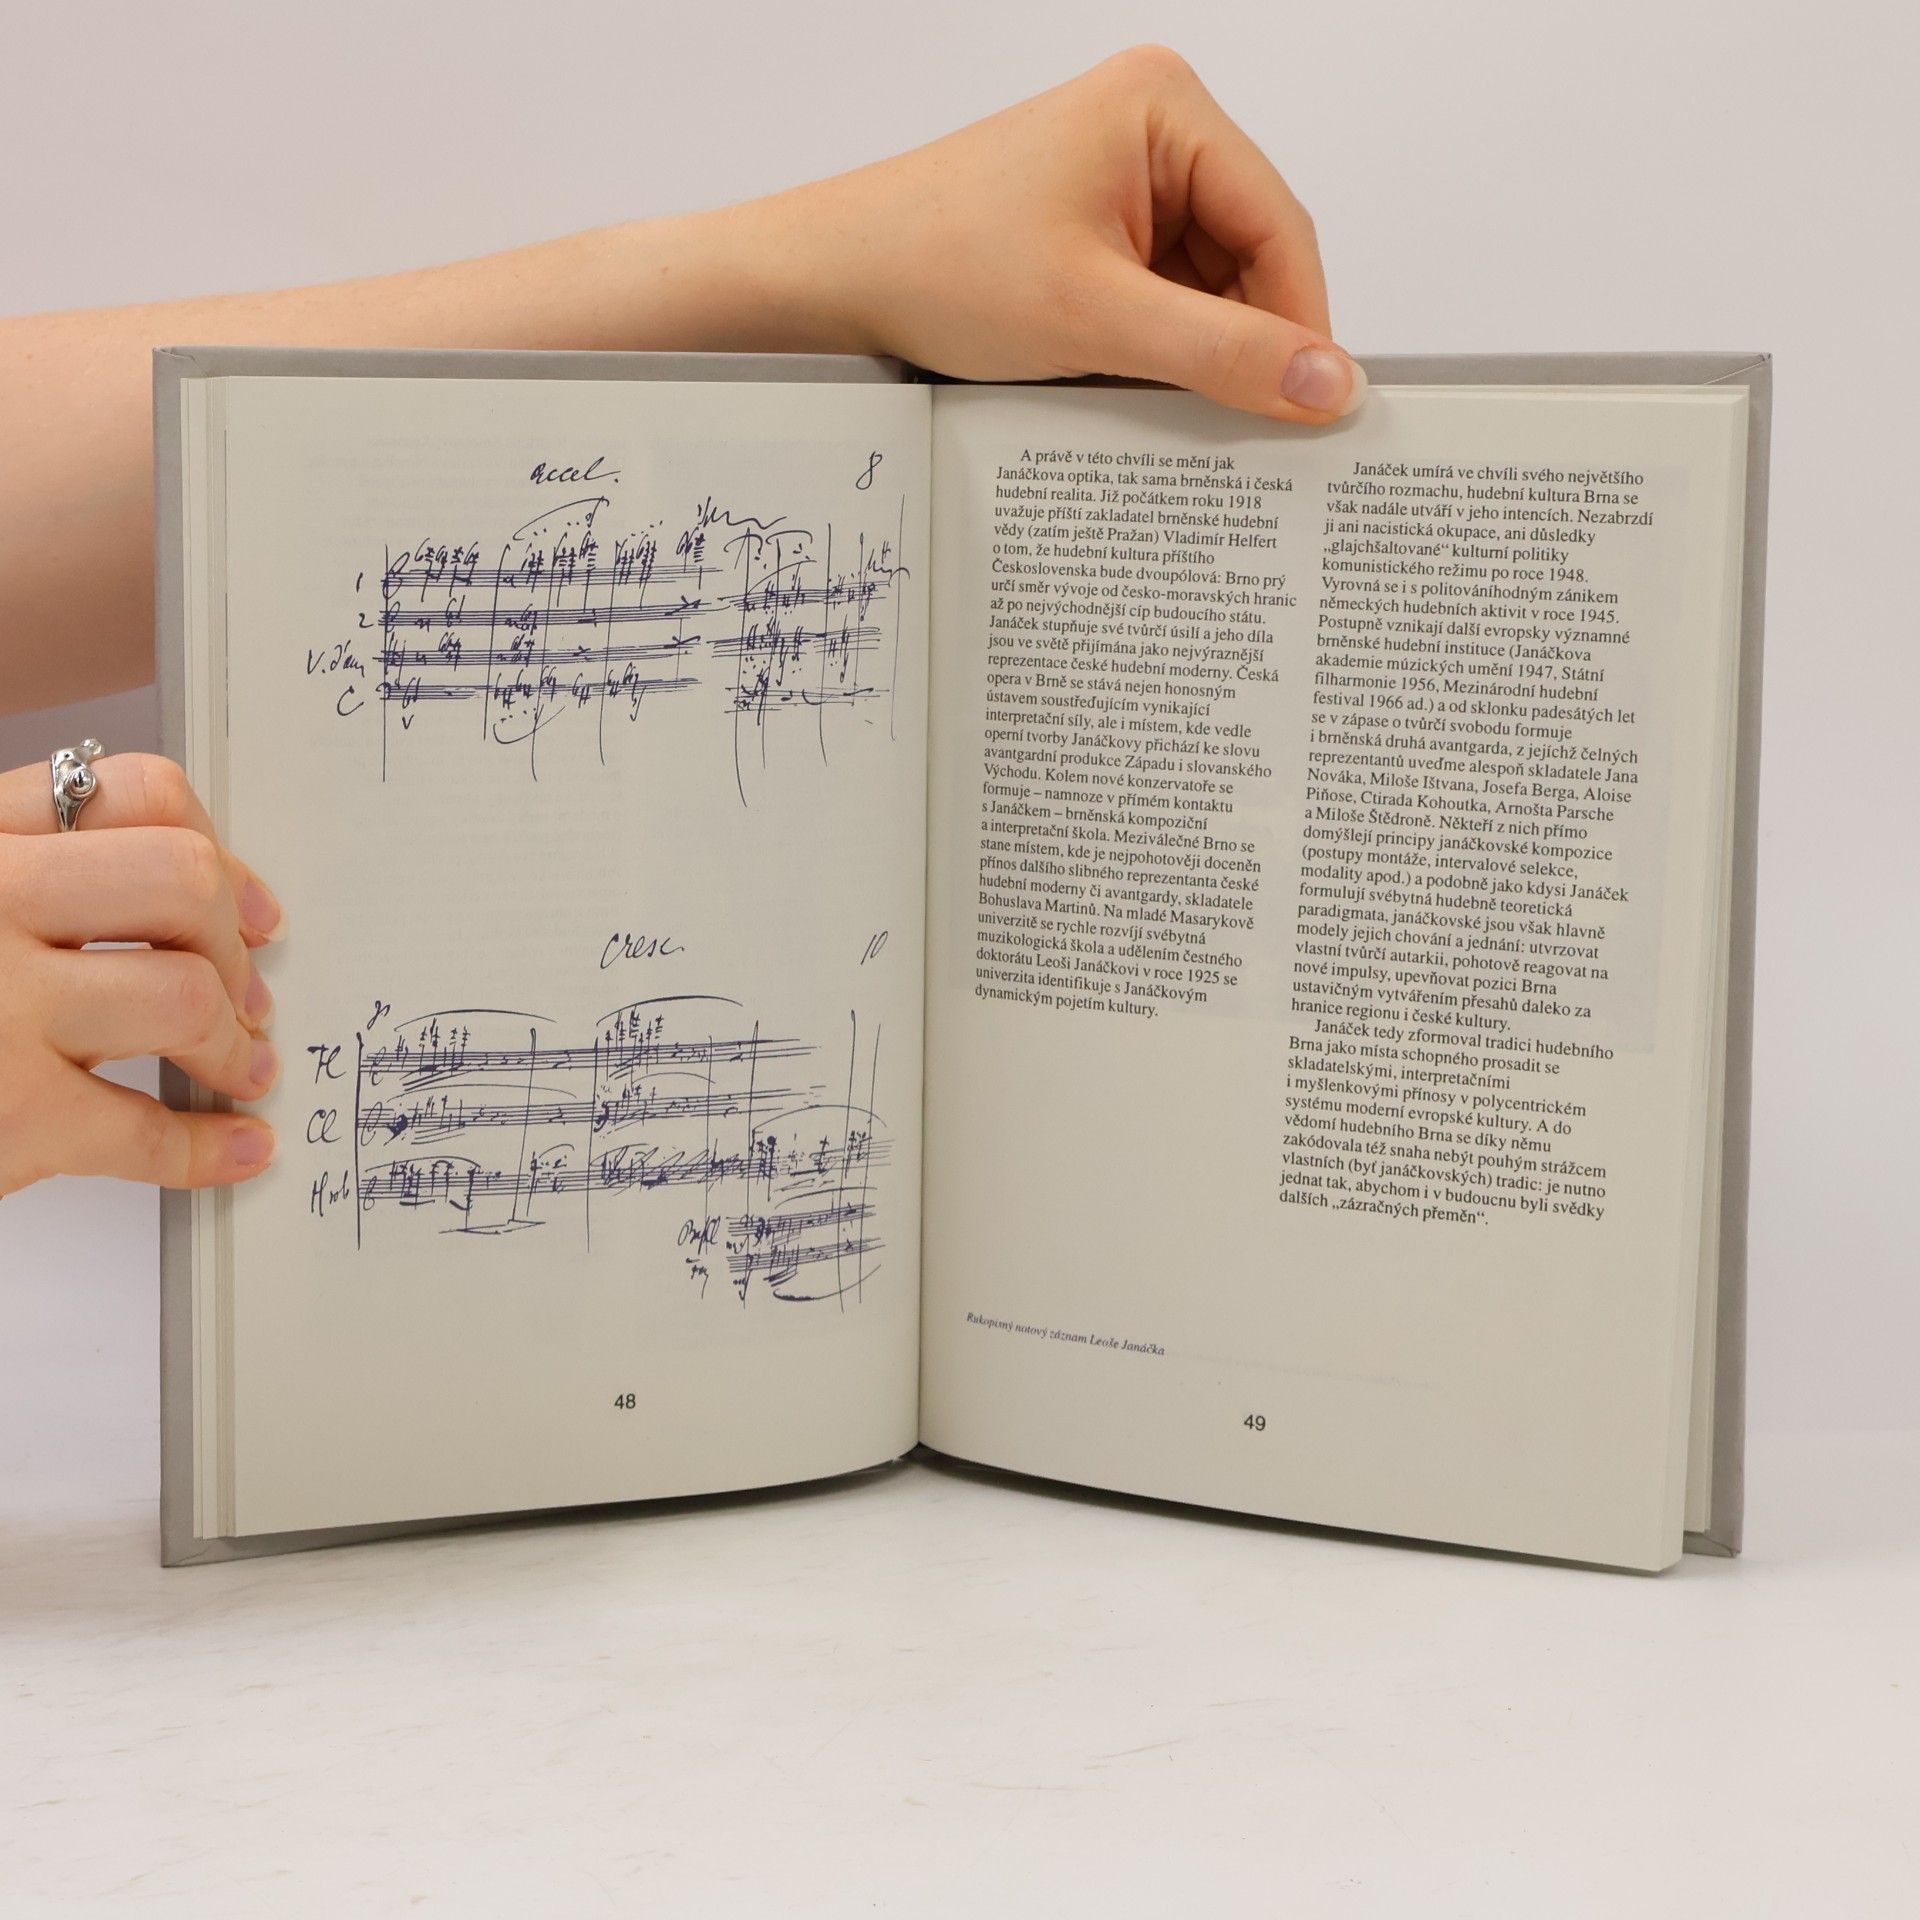 accel.
8
1
2
V. d'am
C
cresc.
10
Fl
Cl
48
A právě v této chvíli se mění jak
Janáčkova optika, tak sama brněnská i česká
hudební realita. Již počátkem roku 1918
uvažuje příští zakladatel brněnské hudební
vědy (zatím ještě Pražan) Vladimír Helfert
o tom, že hudební kultura příštího
Československa bude dvoupólová: Brno prý
určí směr vývoje od česko-moravských hranic
až po nejvýchodnější cíp budoucího státu.
Janáček stupňuje své tvůrčí úsilí a jeho díla
jsou ve světě přijímána jako nejvýraznější
reprezentace české hudební moderny. Česká
opera v Brně se stává nejen honosným
ústavem soustřeďujícím vynikající
interpretační síly, ale i místem, kde vedle
operní tvorby Janáčkovy přichází ke slovu
avantgardní produkce Západu i slovanského
Východu. Kolem nové konzervatoře se
formuje – namnoze v přímém kontaktu
s Janáčkem – brněnská kompoziční
a interpretační škola. Meziválečné Brno se
stane místem, kde je nejpohotověji doceněn
přínos dalšího slibného reprezentanta české
hudební moderny či avantgardy, skladatele
Bohuslava Martinů. Na mladé Masarykově
univerzitě se rychle rozvíjí svébytná
muzikologická škola a udělením čestného
doktorátu Leoši Janáčkovi v roce 1925 se
univerzita identifikuje s Janáčkovým
dynamickým pojetím kultury.
Janáček umírá ve chvíli svého největšího
tvůrčího rozmachu, hudební kultura Brna se
však nadále utváří v jeho intencích. Nezabrzdí
ji ani nacistická okupace, ani důsledky
„glajchšaltované“ kulturní politiky
komunistického režimu po roce 1948.
Vyrovná se i s politováníhodným zánikem
německých hudebních aktivit v roce 1945.
Postupně vznikají další evropsky významné
brněnské hudební instituce (Janáčkova
akademie múzických umění 1947, Státní
filharmonie 1956, Mezinárodní hudební
festival 1966 ad.) a od sklonku padesátých let
se v zápase o tvůrčí svobodu formuje
i brněnská druhá avantgarda, z jejíchž čelných
reprezentantů uveďme alespoň skladatele Jana
Nováka, Miloše Ištvana, Josefa Berga, Aloise
Piňose, Ctirada Kohoutka, Arnošta Parsche
a Miloše Štědroně. Někteří z nich přímo
domýšlejí principy janáčkovské kompozice
(postupy montáže, intervalové selekce,
modality apod.) a podobně jako kdysi Janáček
formulují svébytná hudebně teoretická
paradigmata, janáčkovské jsou však hlavně
modely jejich chování a jednání: utvrzovat
vlastní tvůrčí autarkii, pohotově reagovat na
nové impulsy, upevňovat pozici Brna
ustavičným vytvářením přesahů daleko za
hranice regionu i české kultury.
Janáček tedy zformoval tradici hudebního
Brna jako místa schopného prosadit se
skladatelskými, interpretačními
i myšlenkovými přínosy v polycentrickém
systému moderní evropské kultury. A do
vědomí hudebního Brna se díky němu
zakódovala též snaha nebýt pouhým strážcem
vlastních (byť janáčkovských) tradic: je nutno
jednat tak, abychom i v budoucnu byli svědky
dalších „zázračných přeměn“.
Rukopisný notový záznam Leoše Janáčka
49